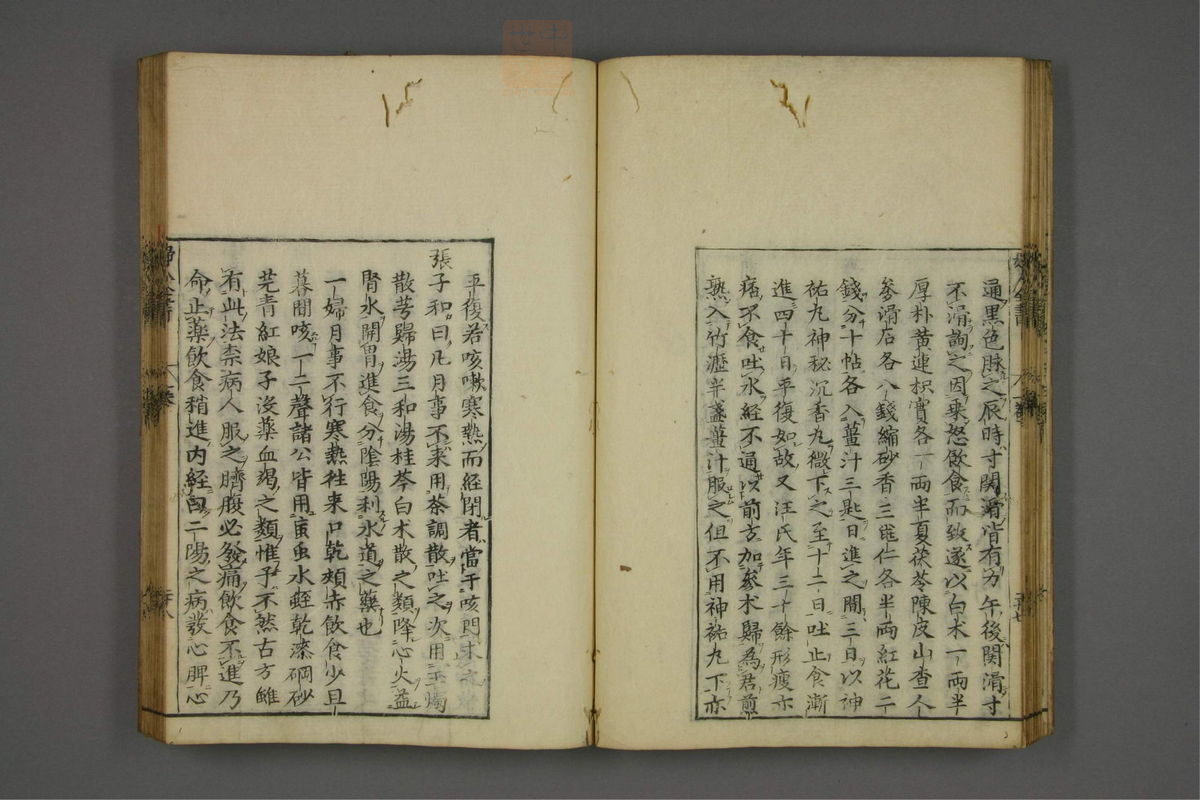 通黒色脉之辰時寸関滑皆有力午後関滑寸
不滑詢之因乗怒飲食而致遂以白术一両半
厚朴黄連枳實各一両半夏茯苓陳皮山查人
参滑石各八錢縮砂香附桃仁各半両紅花二
錢分十帖各入薑汁三匙日進之間三日以神
祐丸神秘沉香丸微下之至十二日吐止食漸
進四十日平復如故又汪氏年三十餘形瘦亦
痞不食吐水經不通以前方加參术歸為君煎
熟入竹瀝半盞薑汁服之但不用神祐丸下亦
平復若咳嗽寒熱而經閉者當于咳門求之
張子和曰凡月事不来用茶調散吐之次用玉燭
散芎歸湯三和湯桂苓白术散之類降心火益
腎水開胃進食分陰陽利水道之藥也
一婦月事不行寒熱徃来口乾頰赤飲食少旦
暮間咳一二聲諸公皆用䖟虫水蛭乾漆硇砂
芫青紅娘子没藥血竭之類惟予不然古方雖
有此法柰病人服之臍腹必發痛飲食不進乃
命止藥飲食稍進内經曰二陽之病發心脾心